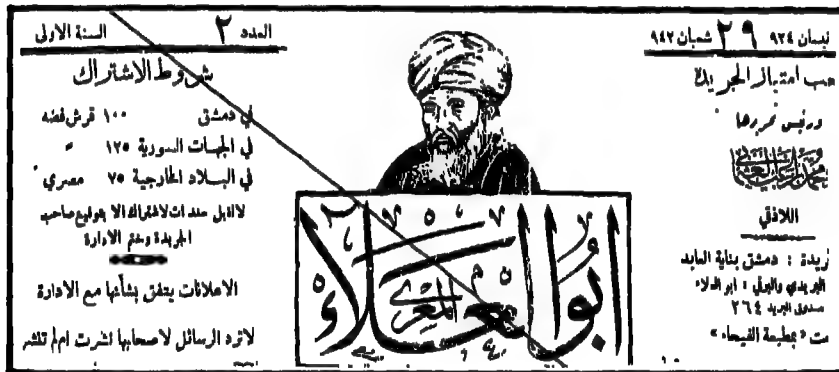 نيسان ٩٢٤ ٢٩ شعبان ٩٤٢
حب امتياز الجريدة
ورئيس تحررها
اللاذقي
ريدة : دمشق بناية العابد
البريدي والبرقي : ابو العلاء
صندوق البريد ٢٦٤
مت « بمطبعة الفيحاء »
ابو العلاء
المعري
العدد ٢ السنة الاولى
شروط الاشتراك
في دمشق ١٠٠ قرش فضه
في الجهات السورية ١٢٥ »
في البلاد الخارجية ٧٥ مصري
لاتقبل سندات الاشتراك الا بتوقيع صاحب
الجريدة وختم الادارة
الاعلانات يتفق بشأنها مع الادارة
لاترد الرسائل لاصحابها نشرت ام لم تنشر